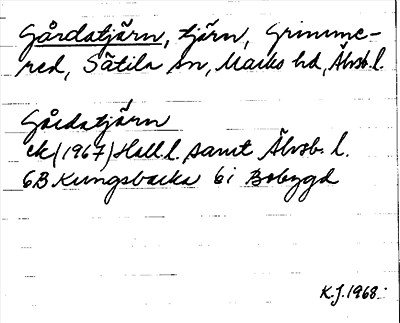 Gårdatjärn, tjärn, Grimme-
red, Sätila sn, Marks hd, Älvsb. l.
Gårdatjärn
ek (1967) Hall. l. samt Älvsb. l.
6B Kungsbacka 6i Bobygd
K.J. 1968.